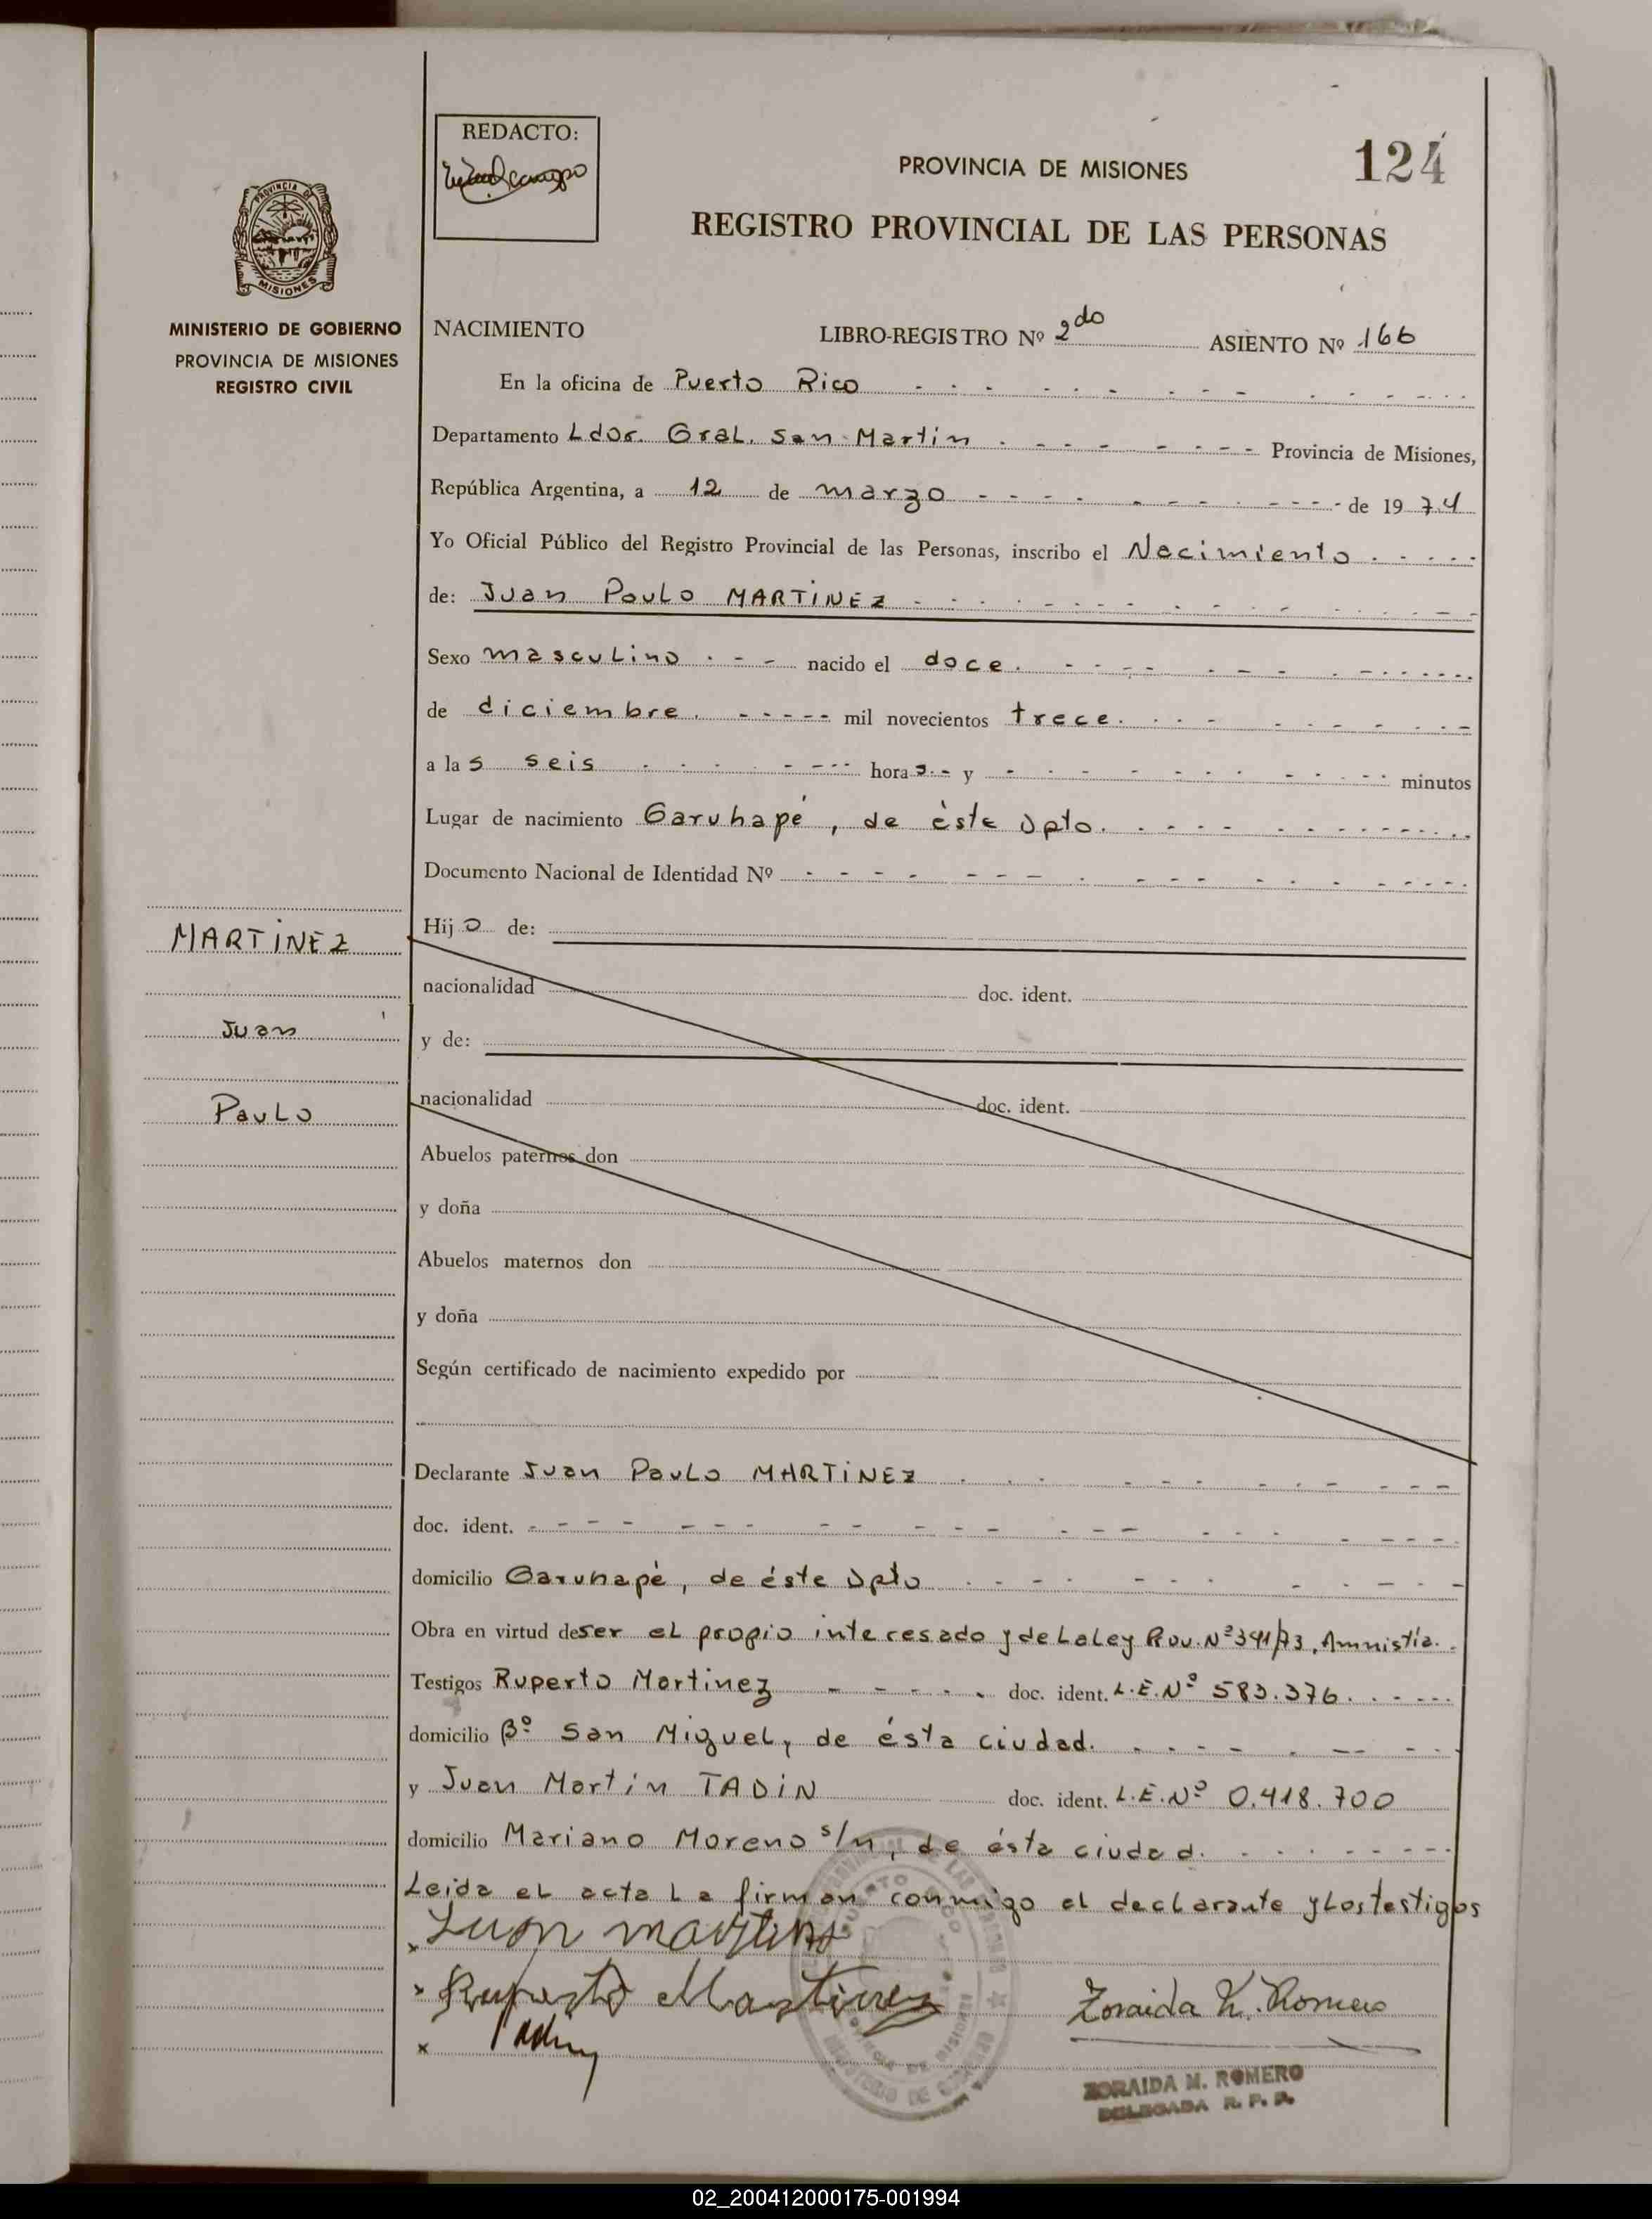 REDACTO:
124
PROVINCIA DE MISIONES
REGISTRO PROVINCIAL DE LAS PERSONAS
PROVINCIA DE
MISIONES
MINISTERIO DE GOBIERNO
PROVINCIA DE MISIONES
REGISTRO CIVIL
NACIMIENTO LIBRO-REGISTRO Nº 2do ASIENTO Nº 166
En la oficina de Puerto Rico
Departamento Ldor. Gral. San Martín Provincia de Misiones,
República Argentina, a 12 de marzo de 1974
Yo Oficial Público del Registro Provincial de las Personas, inscribo el Nacimiento
de: Juan Paulo MARTINEZ
Sexo masculino nacido el doce
de diciembre mil novecientos trece
a las seis horas y minutos
Lugar de nacimiento Garuhapé, de éste Dpto.
Documento Nacional de Identidad Nº
MARTINEZ
Juan
Paulo
Hijo de:
nacionalidad doc. ident.
y de:
nacionalidad doc. ident.
Abuelos paternos don
y doña
Abuelos maternos don
y doña
Según certificado de nacimiento expedido por
Declarante Juan Paulo MARTINEZ
doc. ident.
domicilio Garuhapé, de éste Dpto
Obra en virtud de ser el propio interesado y de la Ley Prov. Nº 341/73, Amnistía.
Testigos Ruperto Martinez doc. ident. L.E.Nº 583.376.
domicilio Bº San Miguel, de ésta ciudad.
y Juan Martín TADIN doc. ident. L.E.Nº 0.418.700
domicilio Mariano Moreno s/n, de ésta ciudad.
Leida el acta la firman conmigo el declarante y los testigos
Juan
Ruperto Martinez
Zoraida M. Romero
ZORAIDA M. ROMERO
DELEGADA R. P. P.
02_200412000175-001994